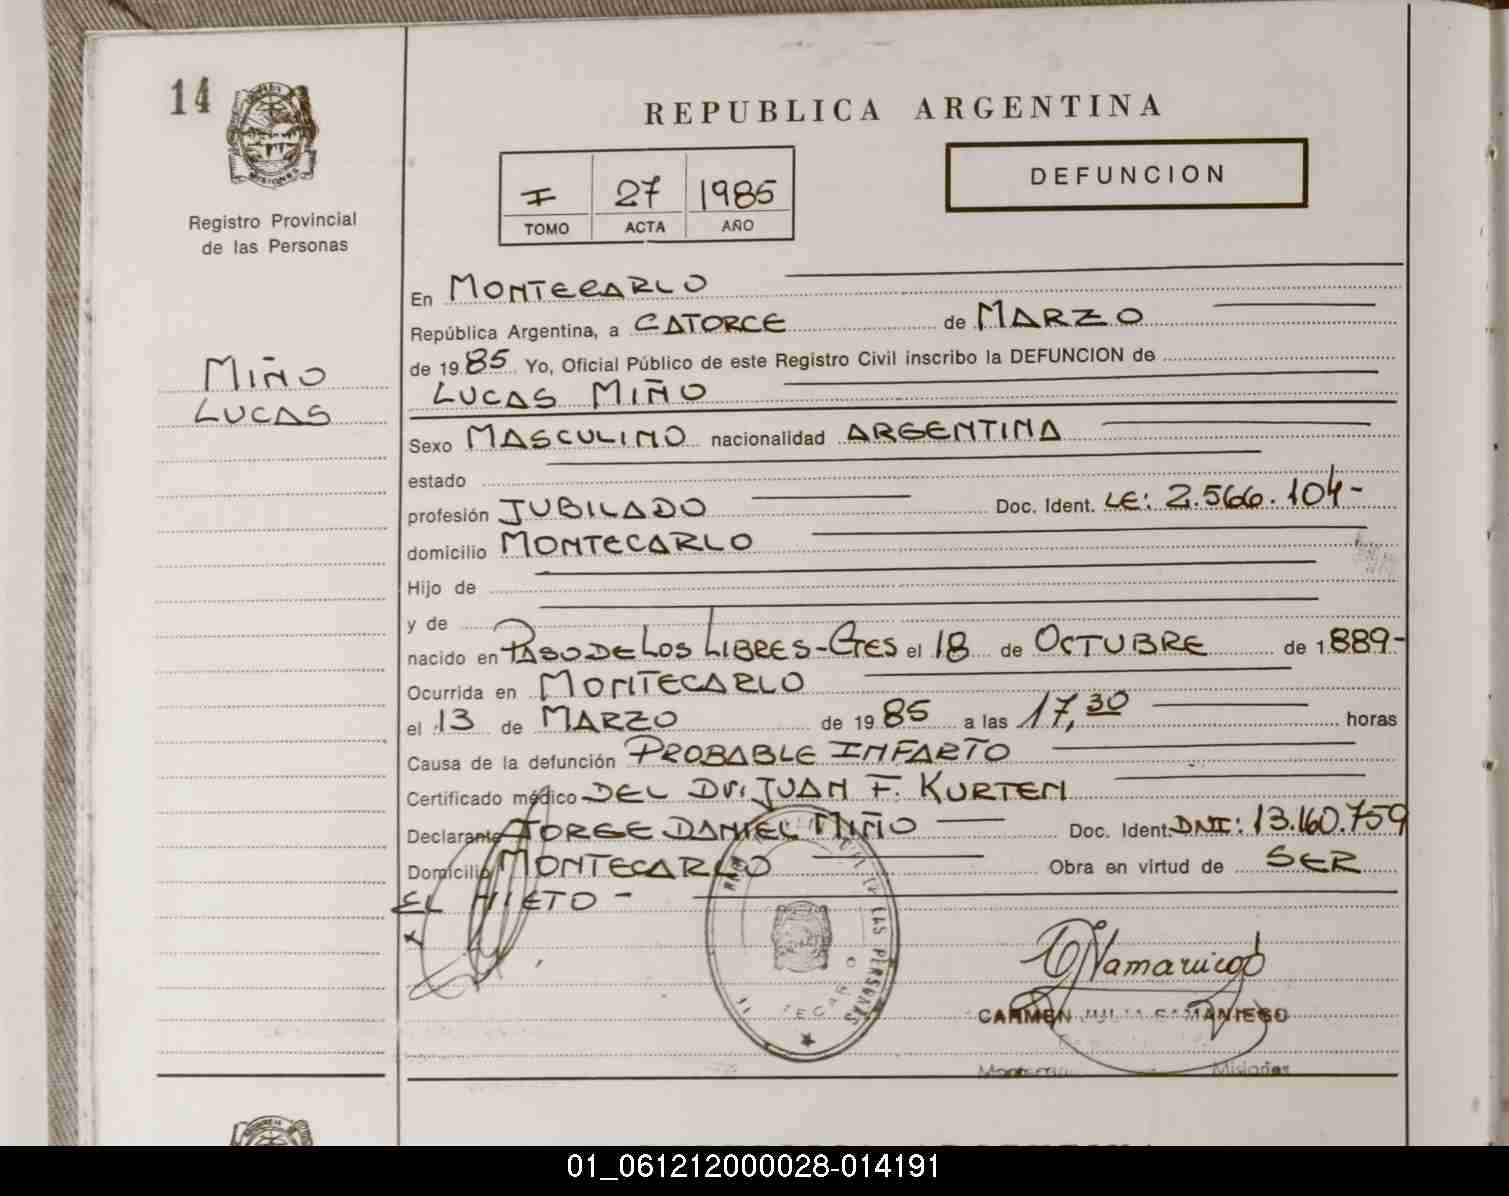 14
MISIONES
Registro Provincial
de las Personas
MIÑO
LUCAS
REPUBLICA ARGENTINA
I 27 1985
TOMO ACTA AÑO
DEFUNCION
En MONTECARLO
República Argentina, a CATORCE de MARZO
de 1985 Yo, Oficial Público de este Registro Civil inscribo la DEFUNCION de
LUCAS MIÑO
Sexo MASCULINO nacionalidad ARGENTINA
estado
profesión JUBILADO Doc. Ident. LE: 2.566.104-
domicilio MONTECARLO
Hijo de
y de
nacido en PASO DE LOS LIBRES-CTES el 18 de OCTUBRE de 1889-
Ocurrida en MONTECARLO
el 13 de MARZO de 1985 a las 17,30 horas
Causa de la defunción PROBABLE INFARTO
Certificado médico DEL Dr: JUAN F. KURTEN
Declarante JORGE DANIEL MIÑO Doc. Ident. DNI: 13.160.759
Domicilio MONTECARLO Obra en virtud de SER
EL NIETO -
LAS PERSONAS
CARMEN JULIA SAMANIEGO
Misiones
01_061212000028-014191